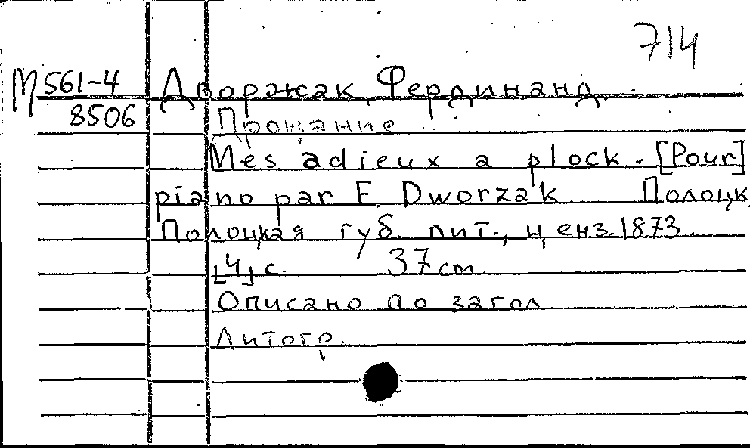 714
М 561-4 Дворжак, Фердинанд.
8506 Прощание
Mes adieux a plock. [Pour]
piano par F. Dworzak Полоцк
Полоцкая губ. лит., ценз. 1873
[4] с. 37 cm
Описано по загол
Литогр.